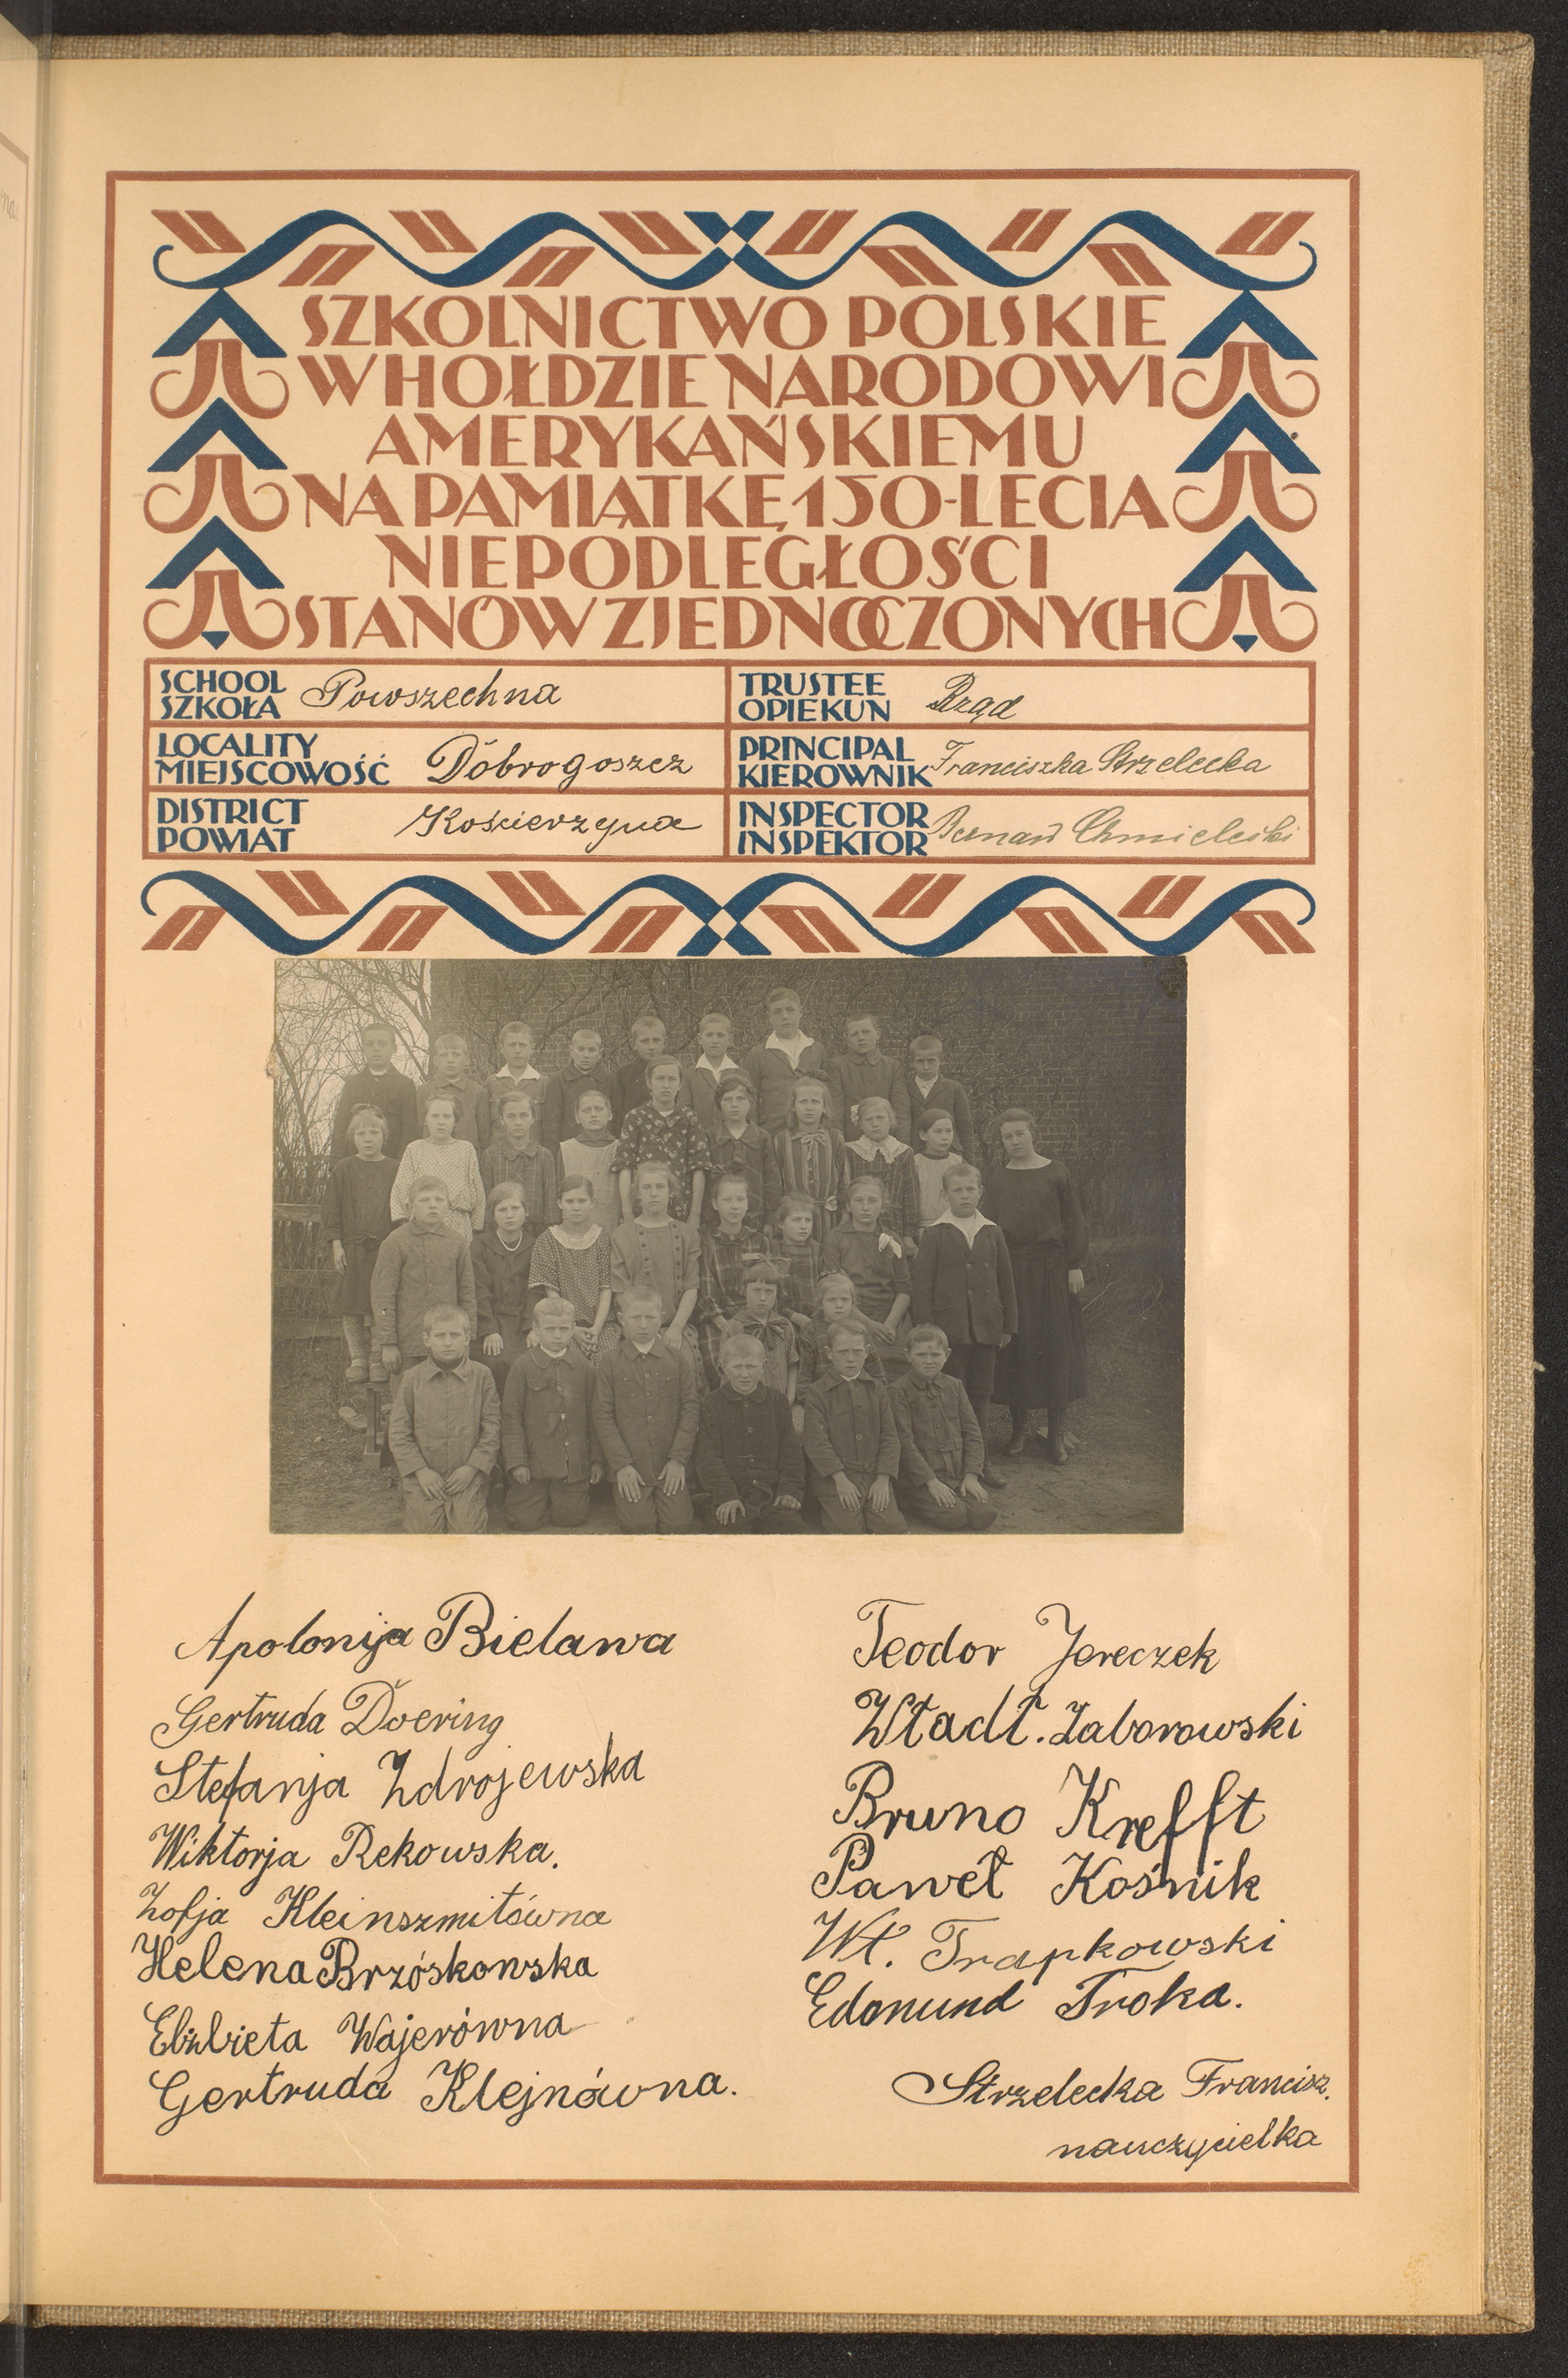 SZKOLNICTWO POLSKIE
W HOŁDZIE NARODOWI
AMERYKAŃSKIEMU
NA PAMIĄTKĘ 150-LECIA
NIEPODLEGŁOŚCI
STANÓW ZJEDNOCZONYCH
SCHOOL
SZKOŁA Powszechna
TRUSTEE
OPIEKUN Rząd
LOCALITY
MIEJSCOWOŚĆ Dobrogoszcz
PRINCIPAL
KIEROWNIK Franciszka Strzelecka
DISTRICT
POWIAT Kościerzyna
INSPECTOR
INSPEKTOR Bernard Chmielecki
Apolonija Bielawa
Gertruda Doering
Stefanja Zdrojewska
Wiktorja Rekowska.
Zofja Kleinszmitówna
Helena Brzóskowska
Elżbieta Wajerówna
Gertruda Klejnówna.
Teodor Jereczek
Władł. Zaborowski
Bruno Krefft
Paweł Kośnik
Wł. Trapkowski
Edmund Troka.
Strzelecka Francisz.
nauczycielka